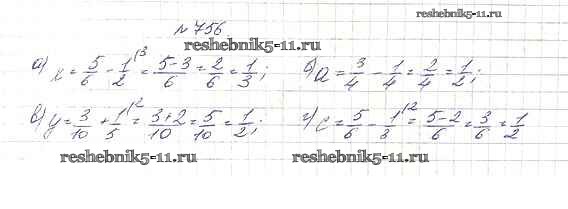 reshebnik5-11.ru
№ 756
reshebnik5-11.ru
а) x = 5/6 - 1/2 |3 = (5-3)/6 = 2/6 = 1/3; б) a = 3/4 - 1/4 = 2/4 = 1/2;
в) y = 3/10 + 1/5 |2 = (3+2)/10 = 5/10 = 1/2; г) c = 5/6 - 1/3 |2 = (5-2)/6 = 3/6 = 1/2
reshebnik5-11.ru reshebnik5-11.ru